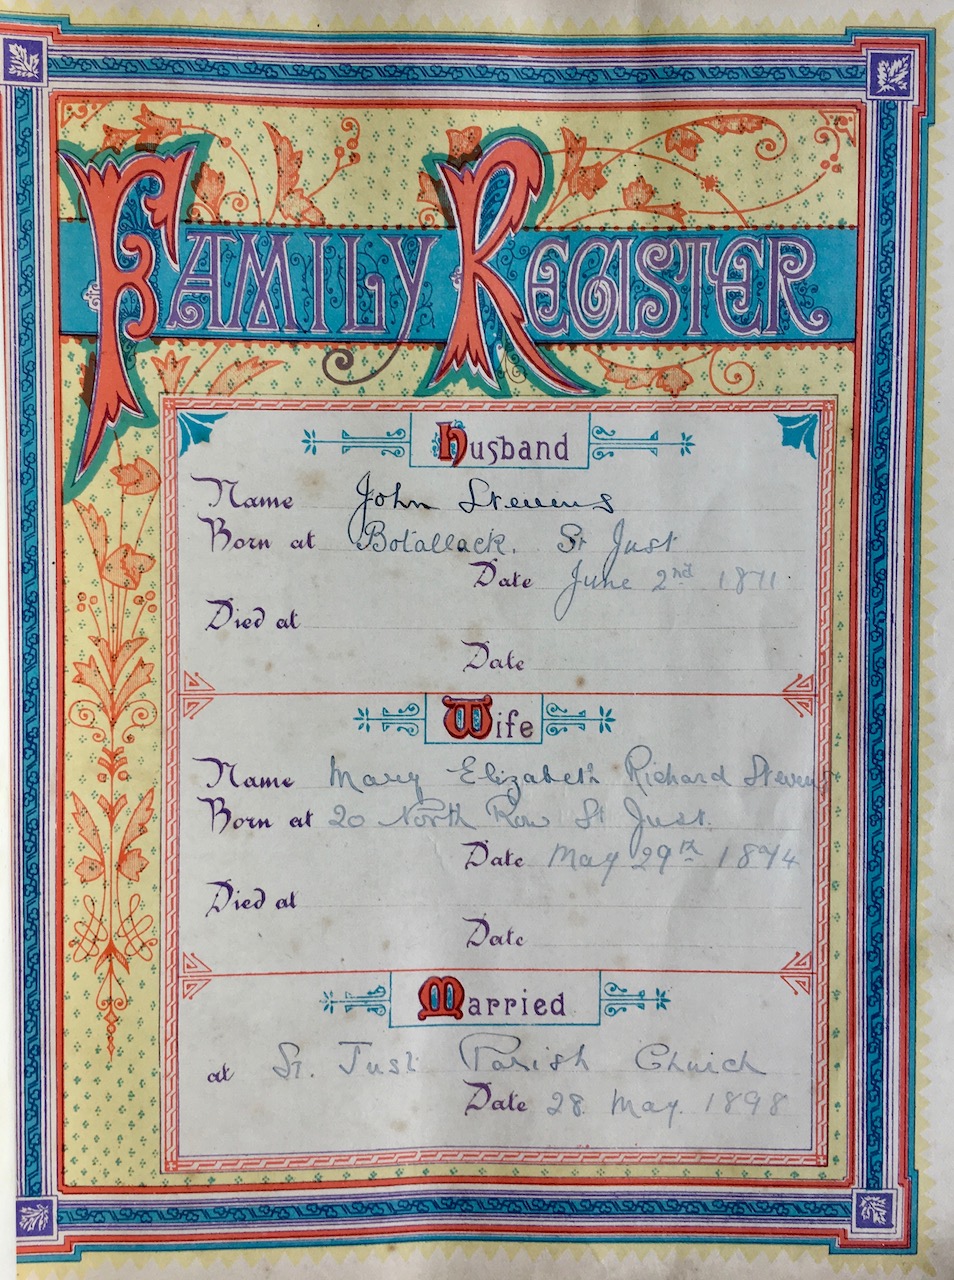 FAMILY REGISTER
Husband
Name John Stevens
Born at Botallack. St Just
Date June 2nd 1871
Died at
Date
Wife
Name Mary Elizabeth Richard Stevens
Born at 20 North Row St Just.
Date May 29th
Died at
Date
Married
at St. Just Parish Church
Date 28 May. 1898